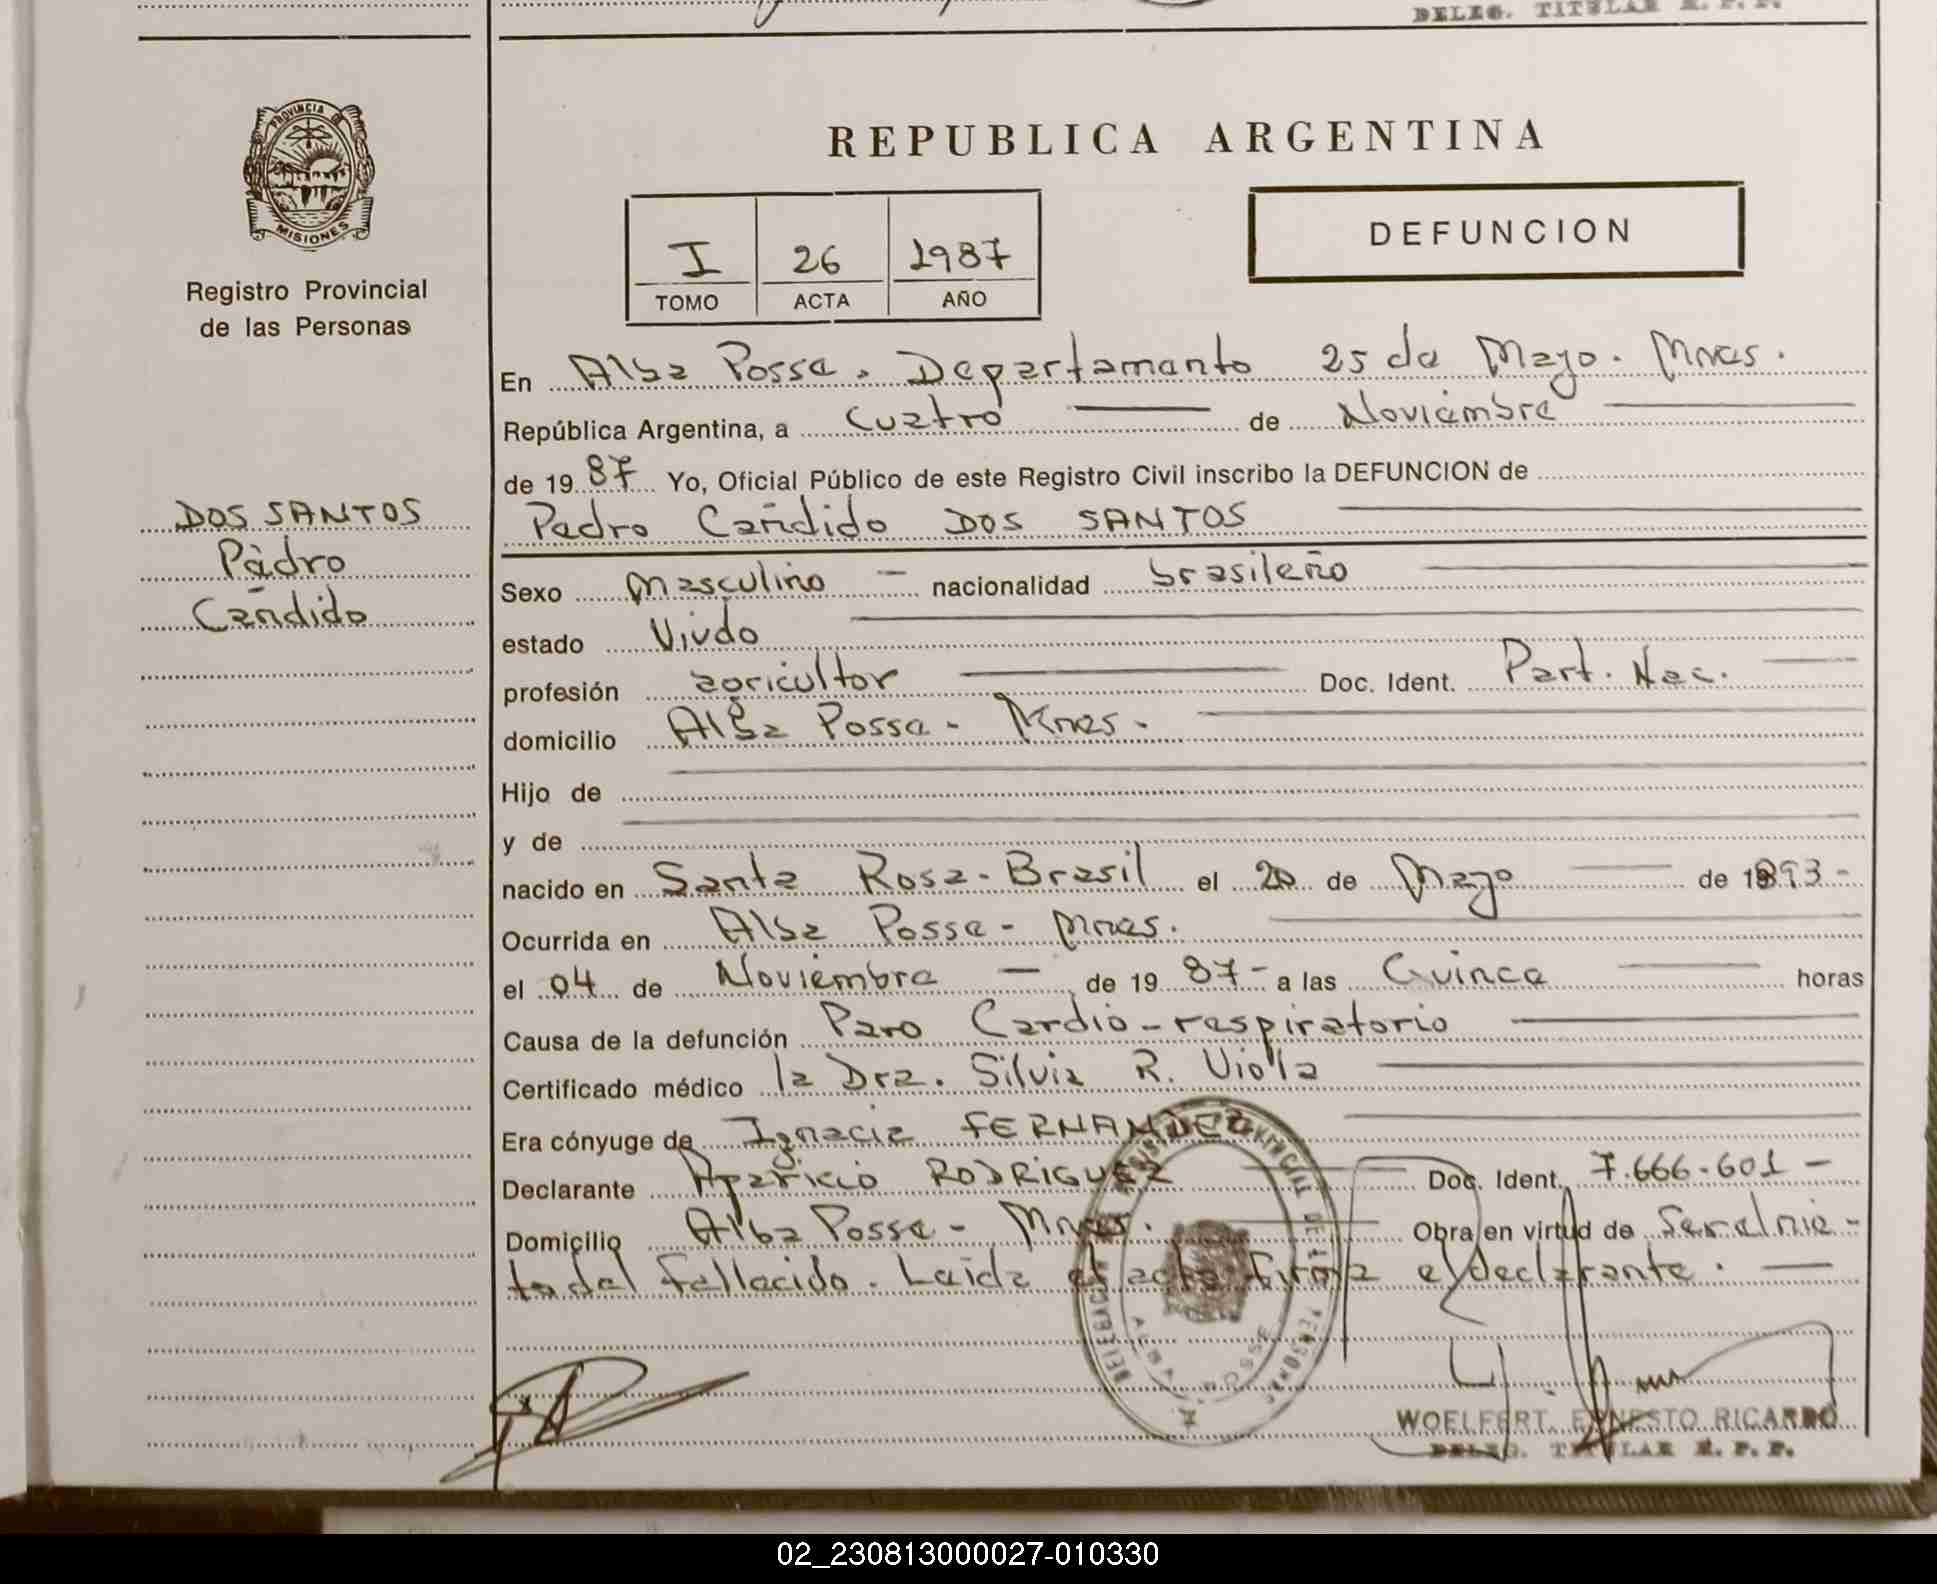 DELEG. TITULAR R. P. P.
PROVINCIA DE
MISIONES
Registro Provincial
de las Personas
REPUBLICA ARGENTINA
I 26 1987
TOMO ACTA AÑO
DEFUNCION
En Alba Posse. Departamento 25 de Mayo. Mnes.
República Argentina, a Cuatro de Noviembre
de 1987 Yo, Oficial Público de este Registro Civil inscribo la DEFUNCION de
Pedro Cañdido DOS SANTOS
DOS SANTOS
Pedro
Cañdido
Sexo Masculino nacionalidad brasileño
estado Viudo
profesión agricultor Doc. Ident. Part. Nac.
domicilio Alba Posse - Mnes.
Hijo de
y de
nacido en Santa Rosa - Brasil el 20 de Mayo de 1893 -
Ocurrida en Alba Posse - Mnes.
el 04 de Noviembre de 1987 - a las Quince horas
Causa de la defunción Paro Cardio-respiratorio
Certificado médico la Dra. Silvia R. Viola
Era cónyuge de Ignacia FERNANDEZ
Declarante Aparicio RODRIGUEZ Doc. Ident. 7.666.601 -
Domicilio Alba Posse - Mnes. Obra en virtud de Ser el nie-
to del fallecido. Leida el acta firma el declarante.
DELEGACION ALBA POSSE
WOELFERT, ERNESTO RICARDO
DELEG. TITULAR R. P. P.
02_230813000027-010330